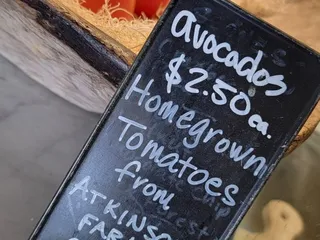 avocados
$2.50 ea.
Homegrown
Tomatoes
from
ATKINSO
FAR